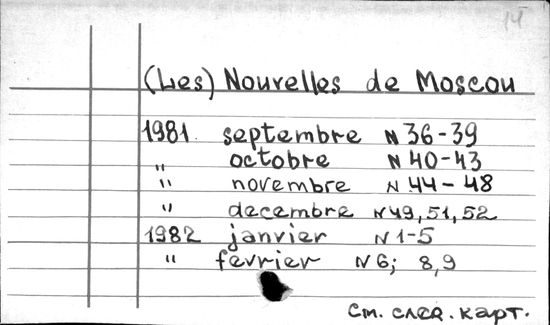 14
(Les) Nouvelles de Moscou
1981 septembre N 36-39
" octobre N 40-43
" novembre N 44-48
" decembre N 49, 51, 52
1982 janvier N 1-5
" fevrier N 6; 8,9
См. след. карт.